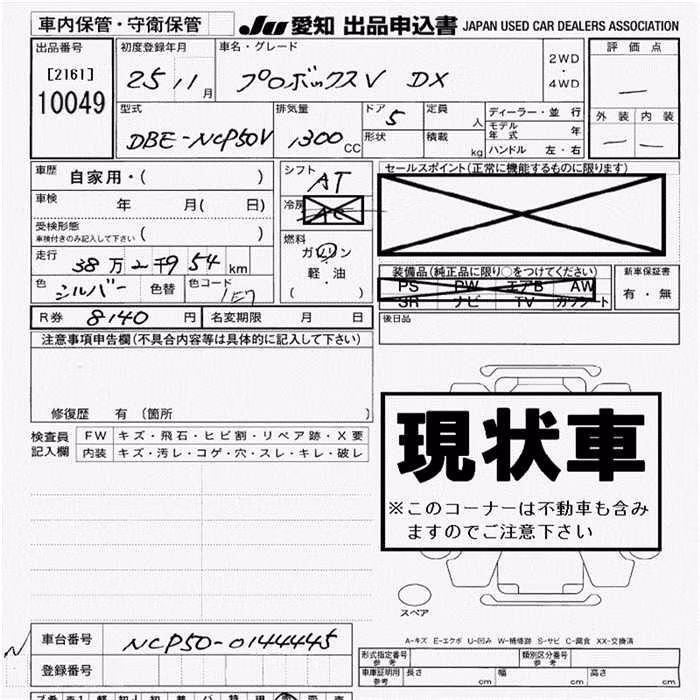 車内保管・守衛保管
JU 愛知 出品申込書 JAPAN USED CAR DEALERS ASSOCIATION
出品番号
[2161]
10049
初度登録年月
25 11月
車名・グレード
プロボックスV DX
2WD
・
4WD
評価点
—
外装 内装
— —
型式
DBE-NCP50V
排気量
1300CC
ドア 5
形状
定員 人
積載 kg
ディーラー・並行
モデル年式 年
ハンドル 左・右
車歴 自家用・( )
車検 年 月( 日)
受検形態
車検付きのみ記入して下さい ( )
走行 38万2千9 54km
色 シルバー 色替 色コード 1E7
シフト AT
冷房 AC
燃料
ガソリン
軽・油
( )
セールスポイント(正常に機能するものに限ります)
装備品(純正品に限り○をつけてください)
PS PW エアB AW
SR ナビ TV カワシート
新車保証書
有・無
R券 8140円 名変期限 月 日
後日品
注意事項申告欄(不具合内容等は具体的に記入して下さい)
修復歴 有(箇所 )
検査員
記入欄
FW キズ・飛石・ヒビ割・リペア跡・X要
内装 キズ・汚レ・コゲ・穴・スレ・キレ・破レ
現状車
※このコーナーは不動車も含み
ますのでご注意下さい
スペア
A-キズ E-エクボ U-凹み W-補修跡 S-サビ C-腐食 XX-交換済
車台番号 NCP50-0144445
登録番号
形式指定番号
参考
類別区分番号
参考
車庫証明用
参考
長さ cm 幅 cm 高さ cm